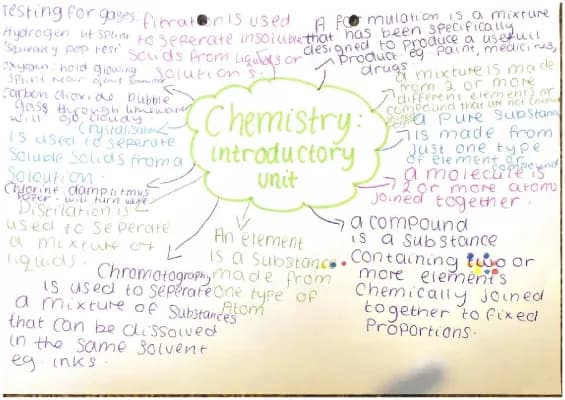 Testing for gases
Hydrogen lit splint
'squeaky pop test'
oxygen: hold glowing
splint near
Carbon dioxide bubble
gass through limewater
will go cloudy
Chlorine. damp litmus
paper - will turn white
filtration is used
to seperate insoluble
solids from liquids or
solutions.
A formulation is a mixture
that has been specifically
designed to produce a usefull
product eg paint, medicines,
drugs
a mixture is made
from 2 or more
different elements or
compound that are not
a pure substance
is made from
just one type
of element or
compound
a molecule is
2 or more atoms
joined together.
a compound
is a substance
containing two or
more elements
chemically joined
together to fixed
proportions.
Chemistry:
introductory
unit
Crystalisation
is used to seperate
soluble solids from a
solution.
Distilation is
used to seperate
a mixture of
liquids.
Chromotography
is used to seperate
a mixture of substances
that can be dissolved
in the same solvent
eg. inks.
An element
is a substance
made from
one type of
Atom